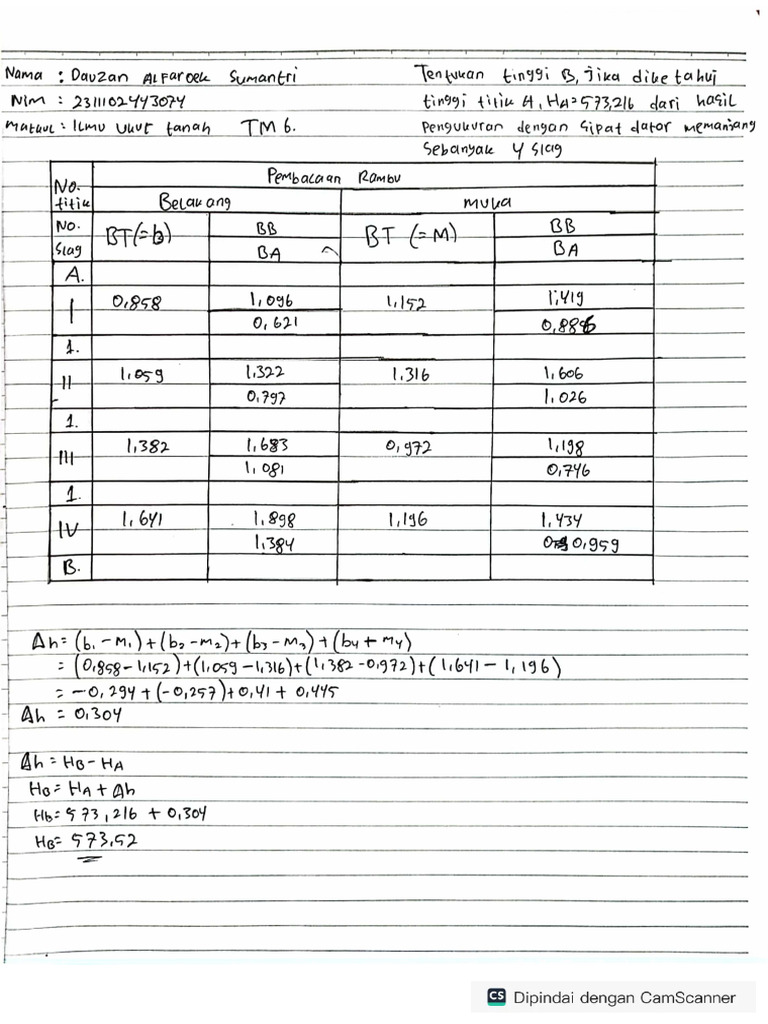 Nama : Dauzan Alfaroek Sumantri
Nim : 2311102443074
Matkul : Ilmu Ukur tanah TM 6.
Tentukan tinggi B, jika diketahui
tinggi titik A, HA=573,216 dari hasil
Pengukuran dengan Sipat dator memanjang
Sebanyak 4 Slag
No. titik
Pembacaan Rambu
Belakang
muka
No. Slag
BT(=b)
BB
BA
BT (=M)
BB
BA
A.
I 0,858 1,096 1,152 1,419
0,621 0,886
1.
II 1,059 1,322 1,316 1,606
0,797 1,026
1.
III 1,382 1,683 0,972 1,198
1,081 0,746
1.
IV 1,641 1,898 1,196 1,434
1,384 0,959
B.
Δh = (b₁ - m₁) + (b₂ - m₂) + (b₃ - M₃) + (b4 + m4)
= (0,858 - 1,152) + (1,059 - 1,316) + (1,382 - 0,972) + (1,641 - 1,196)
= -0,294 + (-0,257) + 0,41 + 0,445
Δh = 0,304
Δh = HB - HA
HB = HA + Δh
Hb = 573,216 + 0,304
HB = 573,52
CS Dipindai dengan CamScanner